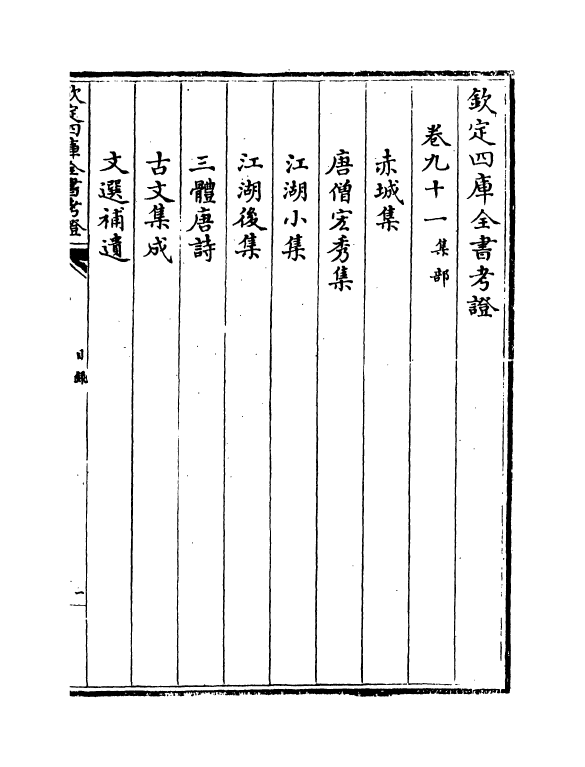 欽定四庫全書考證
卷九十一集部
赤城集
唐僧宏秀集
江湖小集
江湖後集
三體唐詩
古文集成
文選補遺
欽定四庫全書考證
目錄
一